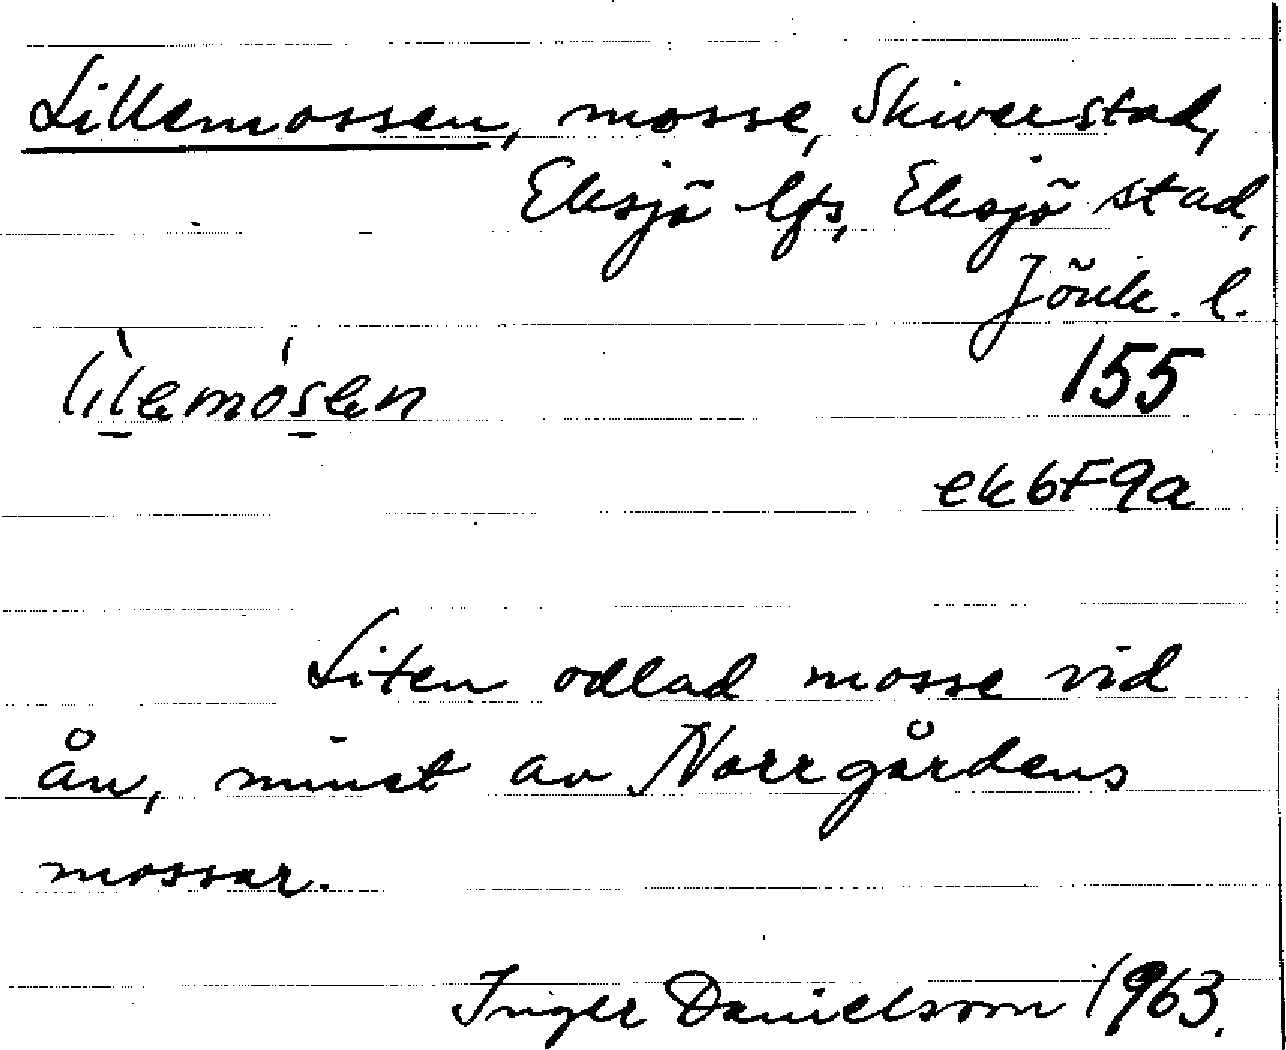 Lillemossen, mosse, Skiverstad,
Eksjö lfs, Eksjö stad,
Jönk. l.
lìlemósen 155
ek 6F9a
Liten odlad mosse vid
ån, minst av Norrgårdens
mossar.
Inger Danielsson 1963.